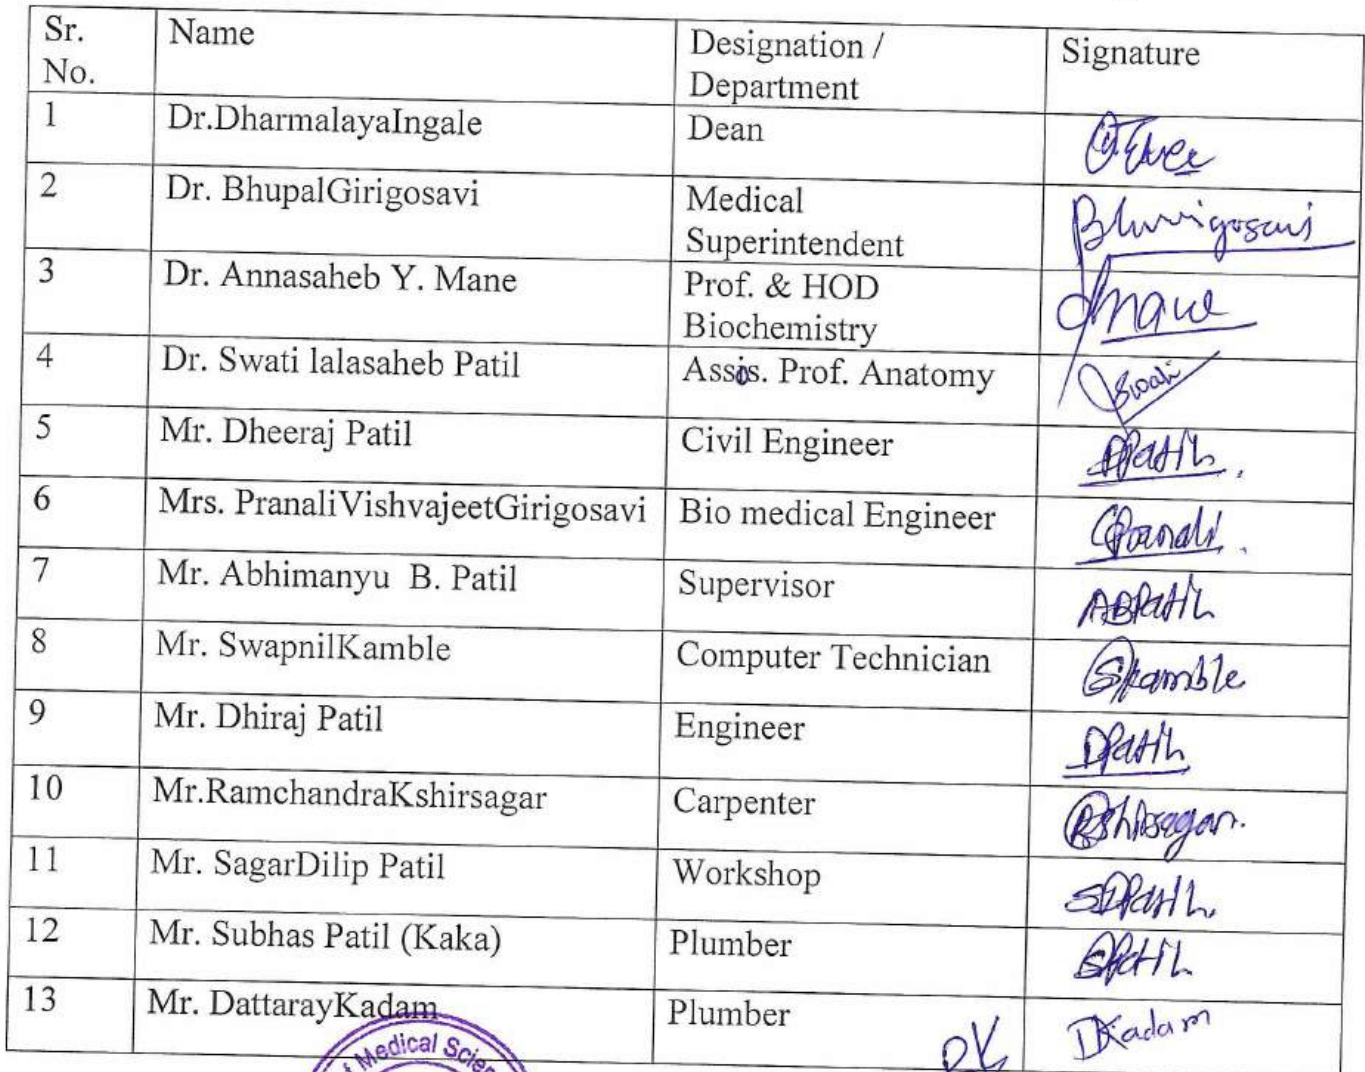 Sr. No. Name Designation / Department Signature
1 Dr.DharmalayaIngale Dean
2 Dr. BhupalGirigosavi Medical Superintendent Bhurigosavi
3 Dr. Annasaheb Y. Mane Prof. & HOD Biochemistry Mane
4 Dr. Swati lalasaheb Patil Assis. Prof. Anatomy Swati
5 Mr. Dheeraj Patil Civil Engineer DPatil.
6 Mrs. PranaliVishvajeetGirigosavi Bio medical Engineer Pranali.
7 Mr. Abhimanyu B. Patil Supervisor ABPatil
8 Mr. SwapnilKamble Computer Technician SKamble
9 Mr. Dhiraj Patil Engineer DPatil
10 Mr.RamchandraKshirsagar Carpenter
11 Mr. SagarDilip Patil Workshop SDPatil.
12 Mr. Subhas Patil (Kaka) Plumber SPatil
13 Mr. DattarayKadam Plumber DK DKadam
Medical